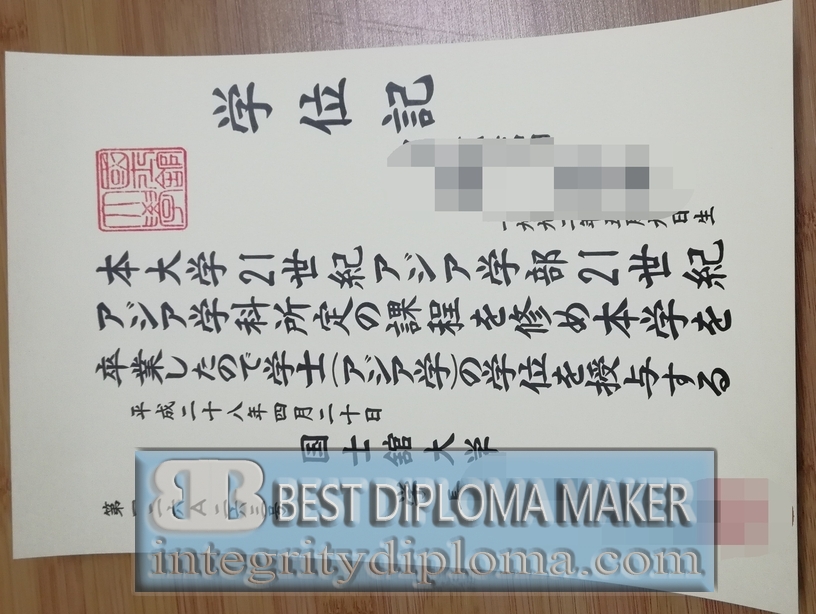 学位記
一九九二年五月九日生
本大学21世紀アジア学部21世紀
アジア学科所定の課程を修め本学を
卒業したので学士(アジア学)の学位を授与する
平成二十八年四月二十日
国士舘大学
学長
第
BB BEST DIPLOMA MAKER
integritydiploma.com